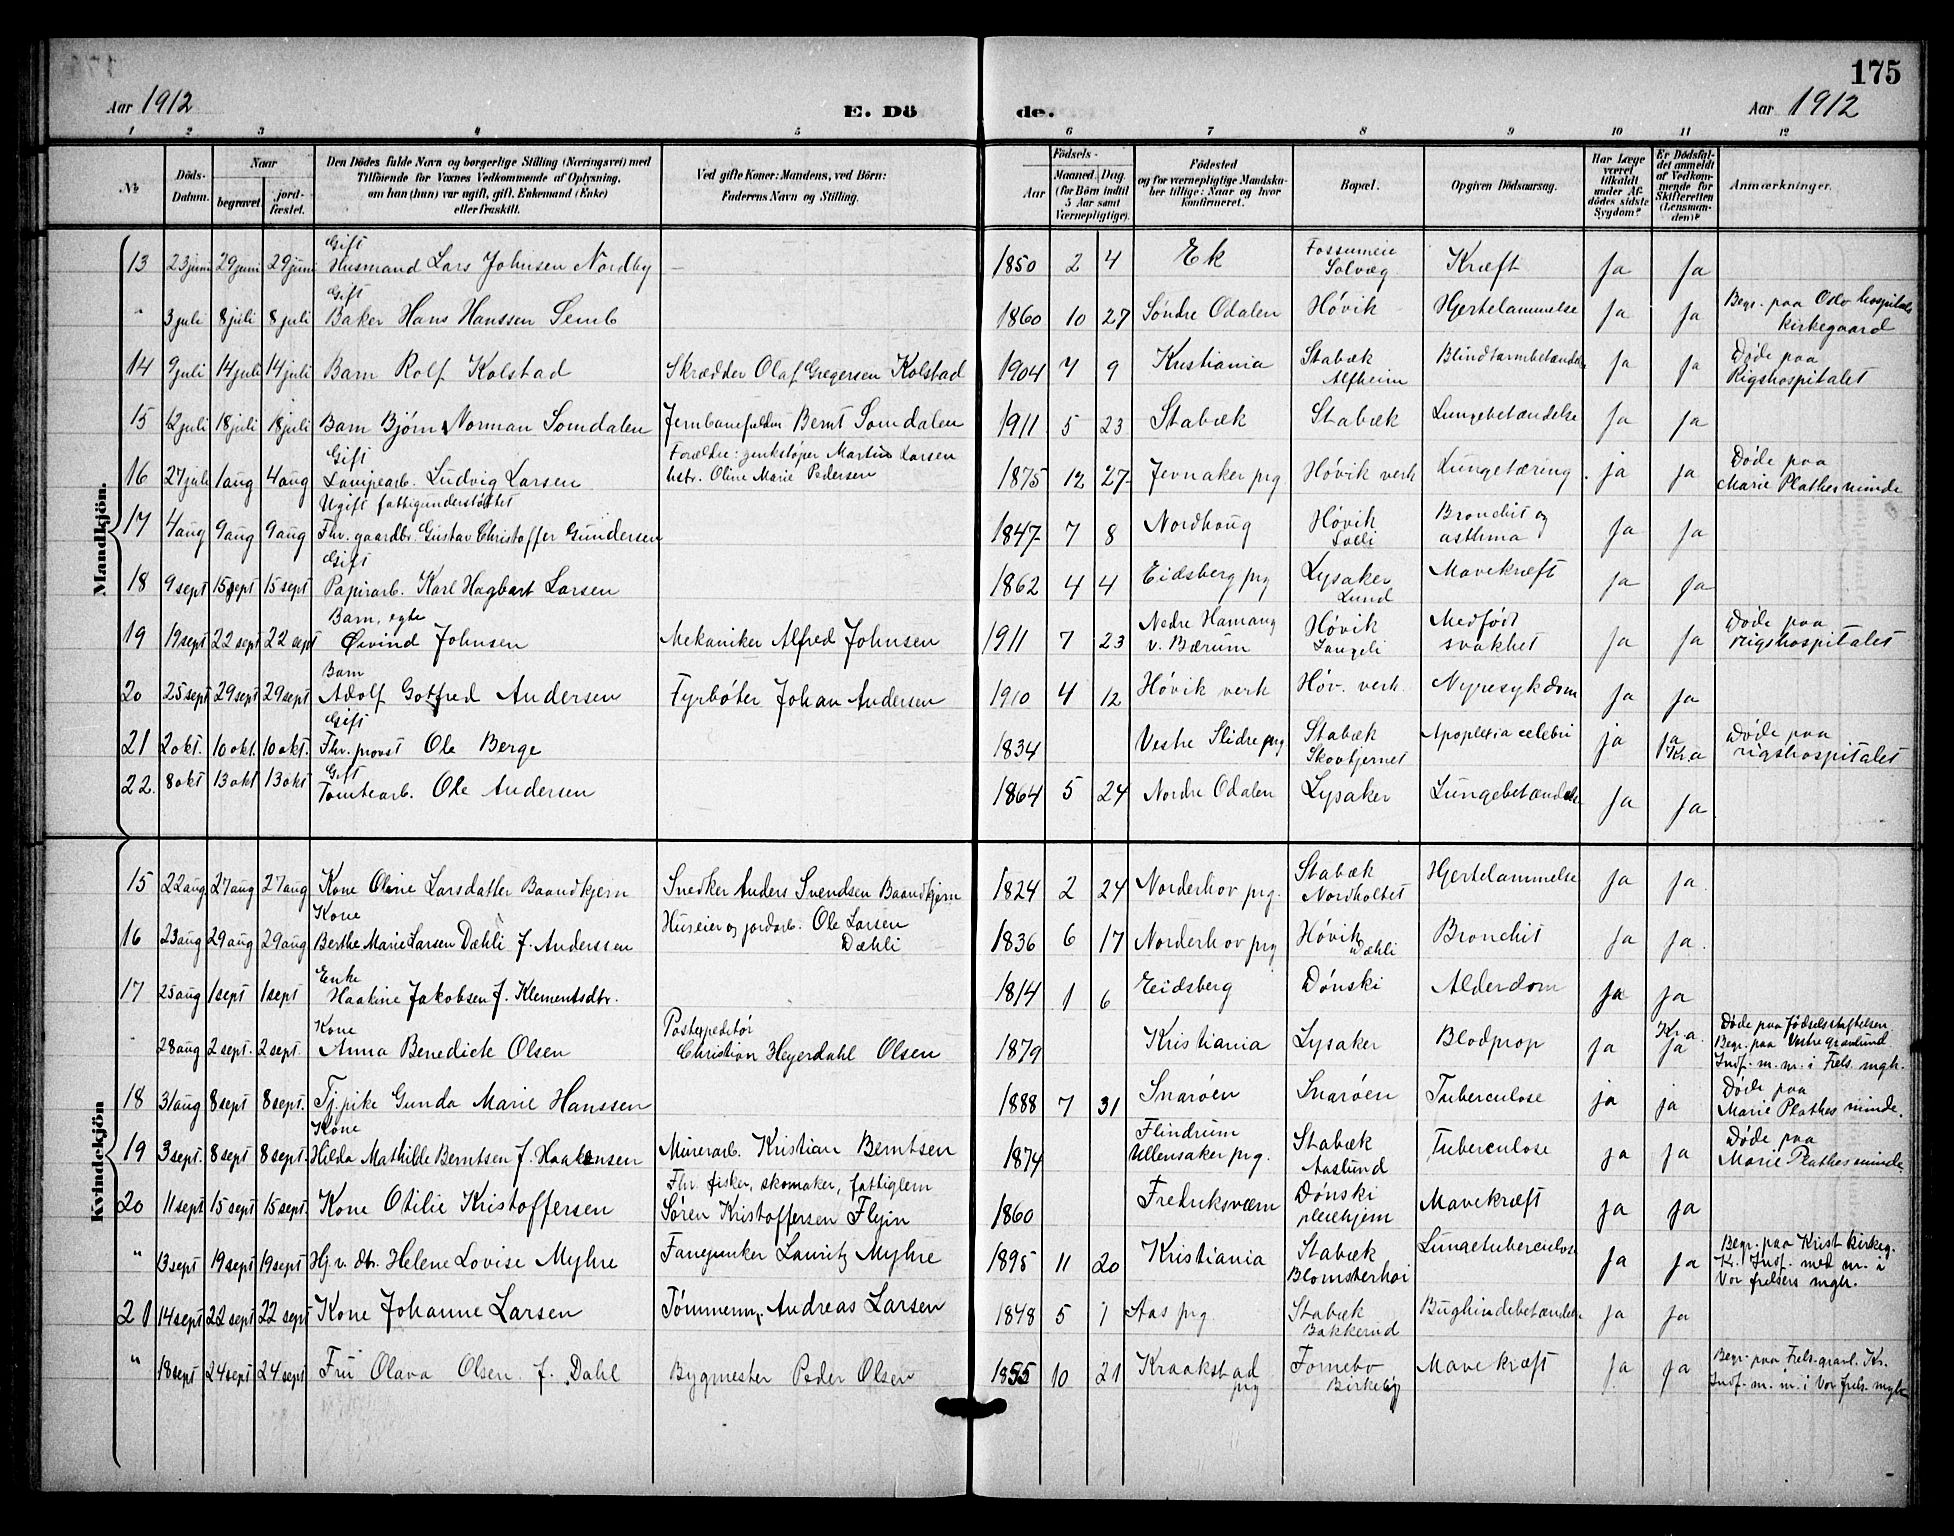 175
Aar 1912 E. Dö de. Aar 1912
1 2 3 4 5 6 7 8 9 10 11 12
No. Döds-Datum. Naar begravet. jord-fæstet. Den Dödes fulde Navn og borgerlige Stilling (Næringsvei) med Tilföiende for Voxnes Vedkommende af Oplysning, om han (hun) var ugift, gift, Enkemand (Enke) eller fraskilt. Ved gifte Koner: Mandens, ved Börn: Faderens Navn og Stilling. Födsels- Aar Maaned. Dag. (for Börn indtil 5 Aar samt Værnepligtige). Födested og for værnepligtige Mandskaber tillige: Naar og hvor konfirmeret. Bopæl. Opgiven Dödsaarsag. Har Læge været tilkaldt under Afdödes sidste Sygdom? Er Dödsfaldet anmeldt af Vedkommende for Skifteretten (Lensmanden)? Anmærkninger.
Mandkjön.
13 23 juni 29 juni 29 juni Gift Husmand Lars Johnsen Nordby — 1850 2 4 Ek Fossumeie Solvæg Kræft Ja Ja
" 3 juli 8 juli 8 juli Gift Baker Hans Hanssen Semb 1860 10 27 Søndre Odalen Høvik Hjertelammelse Ja Ja Begr. paa Oslo hospitals kirkegaard
14 9 juli 14 juli 14 juli Barn Rolf Kolstad Skrædder Olaf Gregersen Kolstad 1904 7 9 Kristiania Stabæk Alfheim Blindtarmbetændelse Ja Ja Døde paa Rigshospitalet
15 12 juli 18 juli 18 juli Barn Bjørn Norman Somdalen Bernt Somdalen 1911 5 23 Stabæk Stabæk Lungebetændelse Ja Ja
16 27 juli 1 aug 4 aug Gift Lampearb. Ludvig Larsen Forældre: Martin Larsen hstr. Oline Marie Pedersen 1875 12 27 Jevnaker prg Høvik verk Lungetæring Ja Ja Døde paa Marie Plathes minde
17 4 aug 9 aug 9 aug Ugift fattigunderstøttet Fhv. gaardbr. Gustav Christoffer Gundersen 1847 7 8 Nordhoug Høvik Solli Bronchit og asthma Ja Ja
18 9 sept 15 sept 15 sept Gift Papirarb. Karl Hagbart Larsen 1862 4 4 Eidsberg prg Lysaker Lund Mavekræft Ja Ja
19 19 sept 22 sept 22 sept Barn, egte Øivind Johnsen Mekaniker Alfred Johnsen 1911 7 23 Nedre Hamang v. Bærum Høvik Medfødt svakhet Ja Ja Døde paa rigshospitalet
20 25 sept 29 sept 29 sept Barn Adolf Gotfred Andersen Fyrbøter Johan Andersen 1910 4 12 Høvik verk Høv. verk Nyresykdom Ja Ja
21 2 okt. 10 okt. 10 okt. Gift Fhv. provst Ole Berge 1834 Vestre Slidre prg Stabæk Skovtjernet Apoplexia celebri Ja Ja Kr.a Døde paa rigshospitalet
22. 8 okt 13 okt 13 okt Gift Tomtearb. Ole Andersen 1864 5 24 Nordre Odalen Lysaker Lungebetændelse Ja Ja
Kvindekjön
15 22 aug 27 aug 27 aug Kone Oline Larsdatter Baandkjern Snedker Anders Svendsen Baandkjern 1824 2 24 Norderhov prg. Stabæk Nordholtet Hjertelammelse Ja Ja.
16 23 aug 29 aug 29 aug Kone Berthe Marie Larsen Dæhli f. Anderssen Huseier og jordarb. Ole Larsen Dæhli 1836 6 17 Norderhov prg Høvik Dæhli Bronchit Ja Ja.
17 25 aug 1 sept 1 sept Enke Haakine Jakobsen f. Klementsdtr. 1814 1 6 Eidsberg Dønski Alderdom Ja Ja
" 28 aug 2 sept. 2 sept. Kone Anna Benedicte Olsen Postexpeditør Christian Heyerdahl Olsen 1879 Kristiania Lysaker Blodprop Ja Kr.a. Ja Døde paa Fødselsstiftelsen Begr. paa Vestre gravlund Indf. m. nr. i Frels. mgh.
18 31 aug 8 sept 8 sept. Tj.pike Gunda Marie Hanssen 1888 7 31 Snarøen Snarøen Tuberculose Ja Ja Døde paa Marie Plathes minde.
19 3 sept. 8 sept 8 sept. Kone Hilda Mathilde Berntsen f. Haakensen Murerarb. Kristian Berntsen 1874 Flindrum Ullensaker prg. Stabæk Aaslund Tuberculose Ja Ja Døde paa Marie Plathes minde
20 11 sept 15 sept 15 sept. Kone Otilie Kristoffersen Fhv. fisker, skomaker, fattiglem Søren Kristoffersen 1860 Fredriksværn Dønski pleiehjem Mavekræft Ja Ja
" 13 sept 19 sept 19 sept Hj.v. dtr. Helene Lovise Myhre Fanejunker Lauritz Myhre 1895 11 20 Kristiania Stabæk Blomsterhøi Lungetuberculose Ja Ja Begr. paa Krist kirkeg. Kr. Indf. med nr. i Vor frelsers mgh.
21 14 sept 22 sept 22 sept Kone Johanne Larsen Tømmerm. Andreas Larsen 1848 5 1 Aas prg Stabæk Bakkerud Bughindebetændelse Ja Ja
" 18 sept 24 sept 24 sept Fru Olava Olsen f. Dahl Bygmester Peder Olsen 1855 10 21 Kraakstad prg Fornebo Birkely Mavekræft Ja Ja Begr. paa Frels. gravl. Kr. Indf. m. nr. i Vor frels. mgh